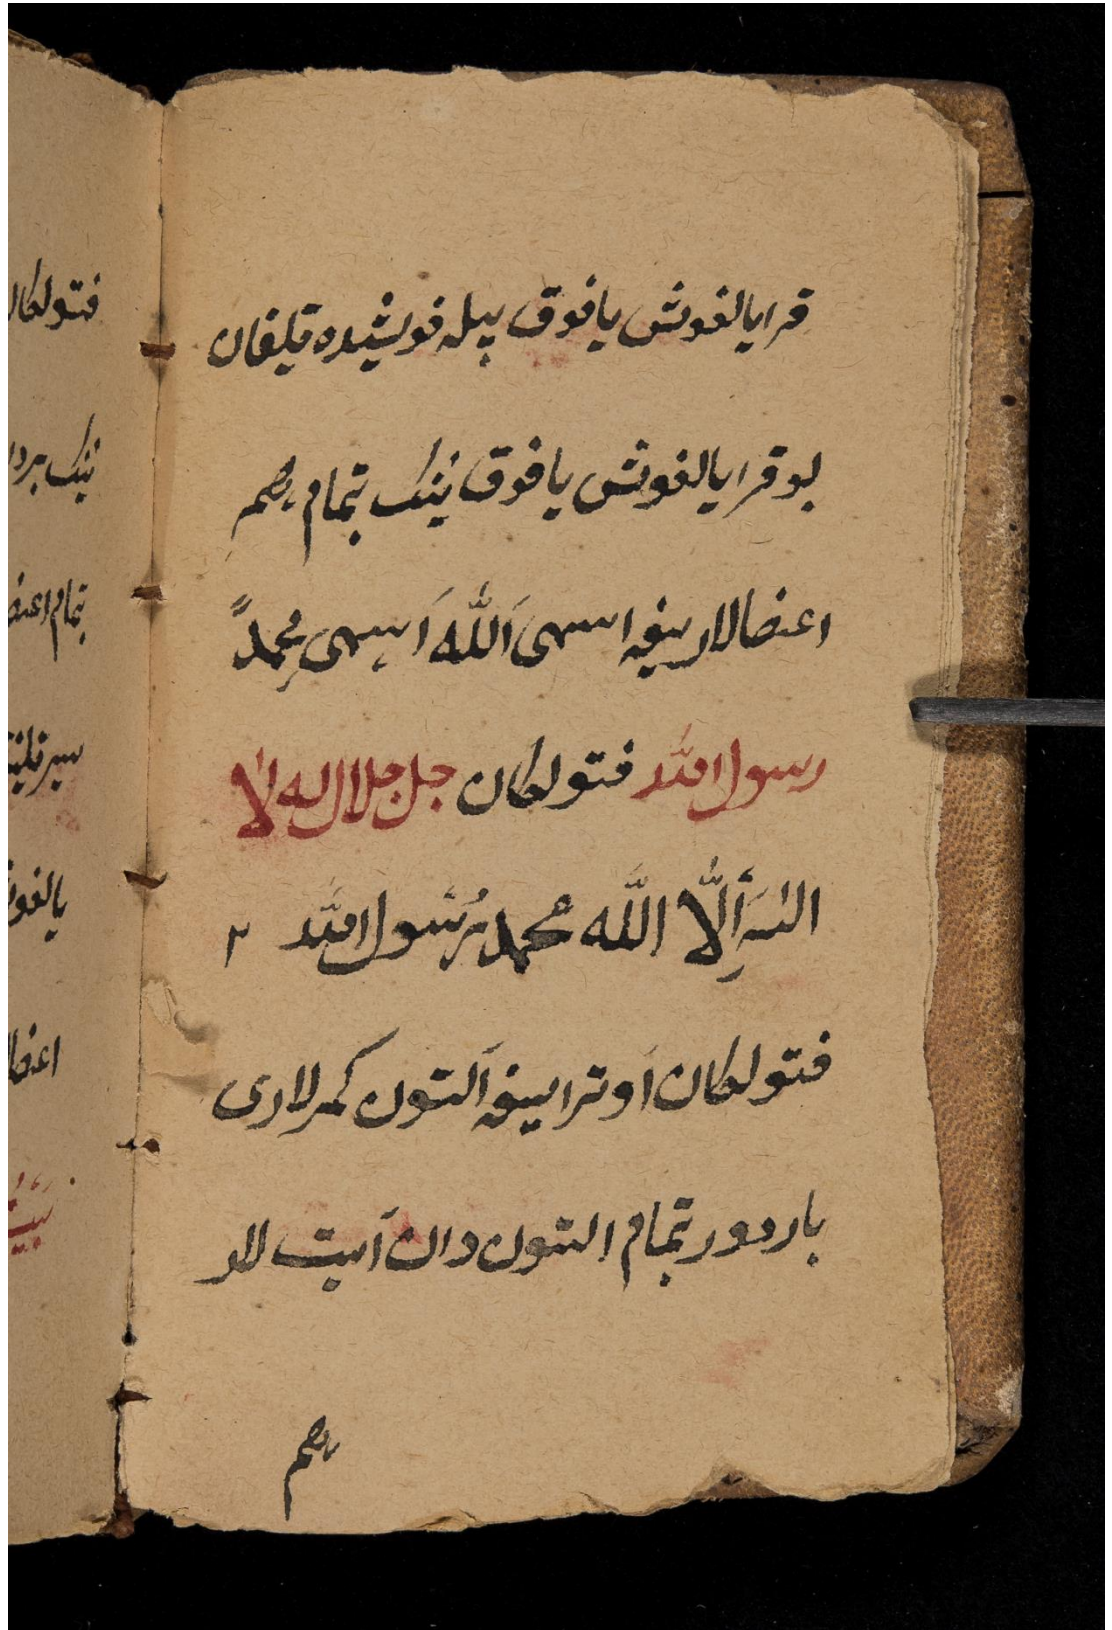 قرا یالغوتش یافوق بیله فوشیده قیلغان
بو قرا یالغوتش یافوق نینک تمام هم
اعضالاریغه اسمی اَللّٰه اَسمی محمدً
رسول الله فتولکان جل جلال له لا
الٰه اِلّا اللّٰه محمد رسول الله ۲
فتولکان اوتراسیغه آلتون کمرلاری
باردور تمام التون دان آیت لار
هم
فتولکان
نینک
تمام اعضا
یالغو
اعضا